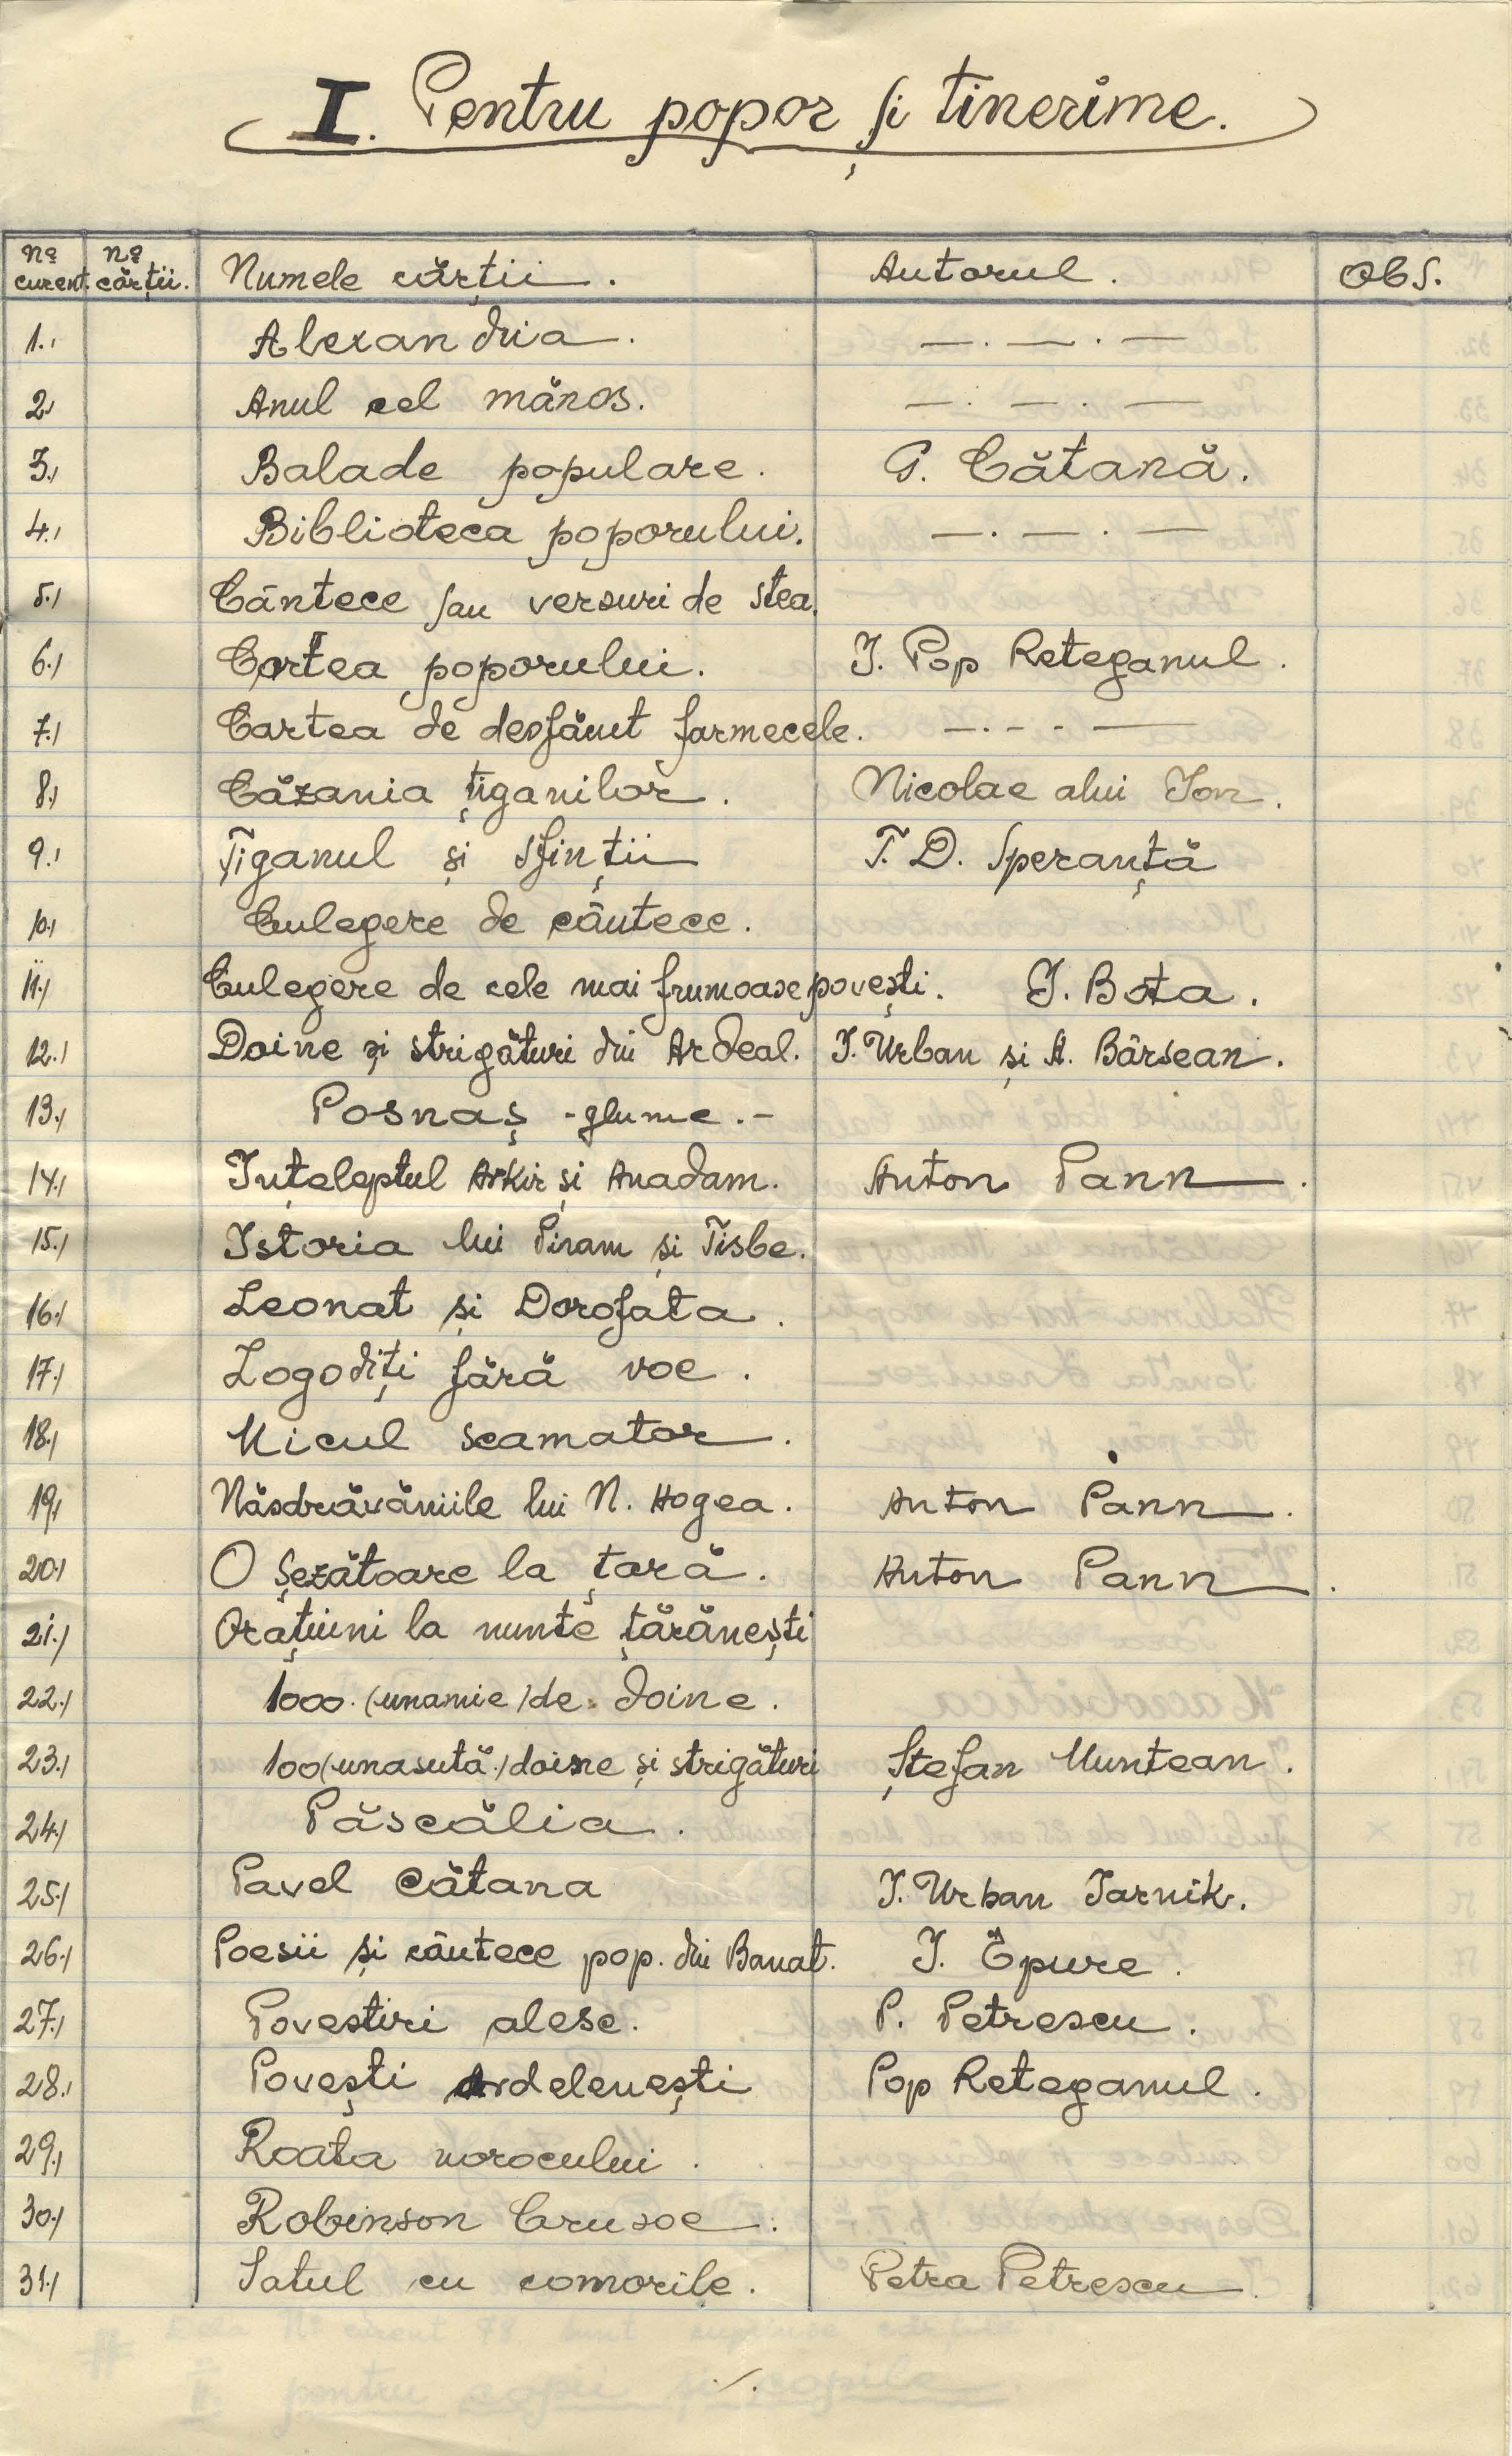 I. Pentru popor și tinerime.
No curent. No cărții. Numele cărții. Autorul. Obs.
1./ Alexandria. —.—.—
2./ Anul cel mănos. —.—.—
3./ Balade populare. G. Cătană.
4./ Biblioteca poporului. —.—.—
5./ Cântece sau versuri de stea.
6./ Cartea poporului. I. Pop Reteganul.
7./ Cartea de desfăcut farmecele. —.-.-—
8./ Căzania țiganilor. Nicolae alui Ion.
9./ Țiganul și sfinții T. D. Speranță
10./ Culegere de cântece.
11./ Culegere de cele mai frumoase povești. I. Bota.
12./ Doine și strigături din Ardeal. I. Urban și A. Bârsean.
13./ Posnaș -glume.-
14./ Înțeleptul Arkir și Anadam. Anton Pann.
15./ Istoria lui Piram și Tisbe.
16./ Leonat și Dorofata.
17./ Logodiți fără voe.
18./ Micul scamator.
19./ Năsdrăvăniile lui N. Hogea. Anton Pann.
20./ O șezătoare la țară. Anton Pann.
21./ Orațiuni la nunte țărănești
22./ 1000. (unamie) de doine.
23./ 100 (unasută.) doine și strigături Ștefan Muntean.
24./ Păscălia.
25./ Pavel Cătana I. Urban Iarnik.
26./ Poesii și cântece pop. din Banat. I. Epure.
27./ Povestiri alese. P. Petrescu.
28./ Povești Ardelenești Pop Reteganul.
29./ Roata norocului.
30./ Robinson Crusoe.
31./ Satul cu comorile. Petra Petrescu.
./.